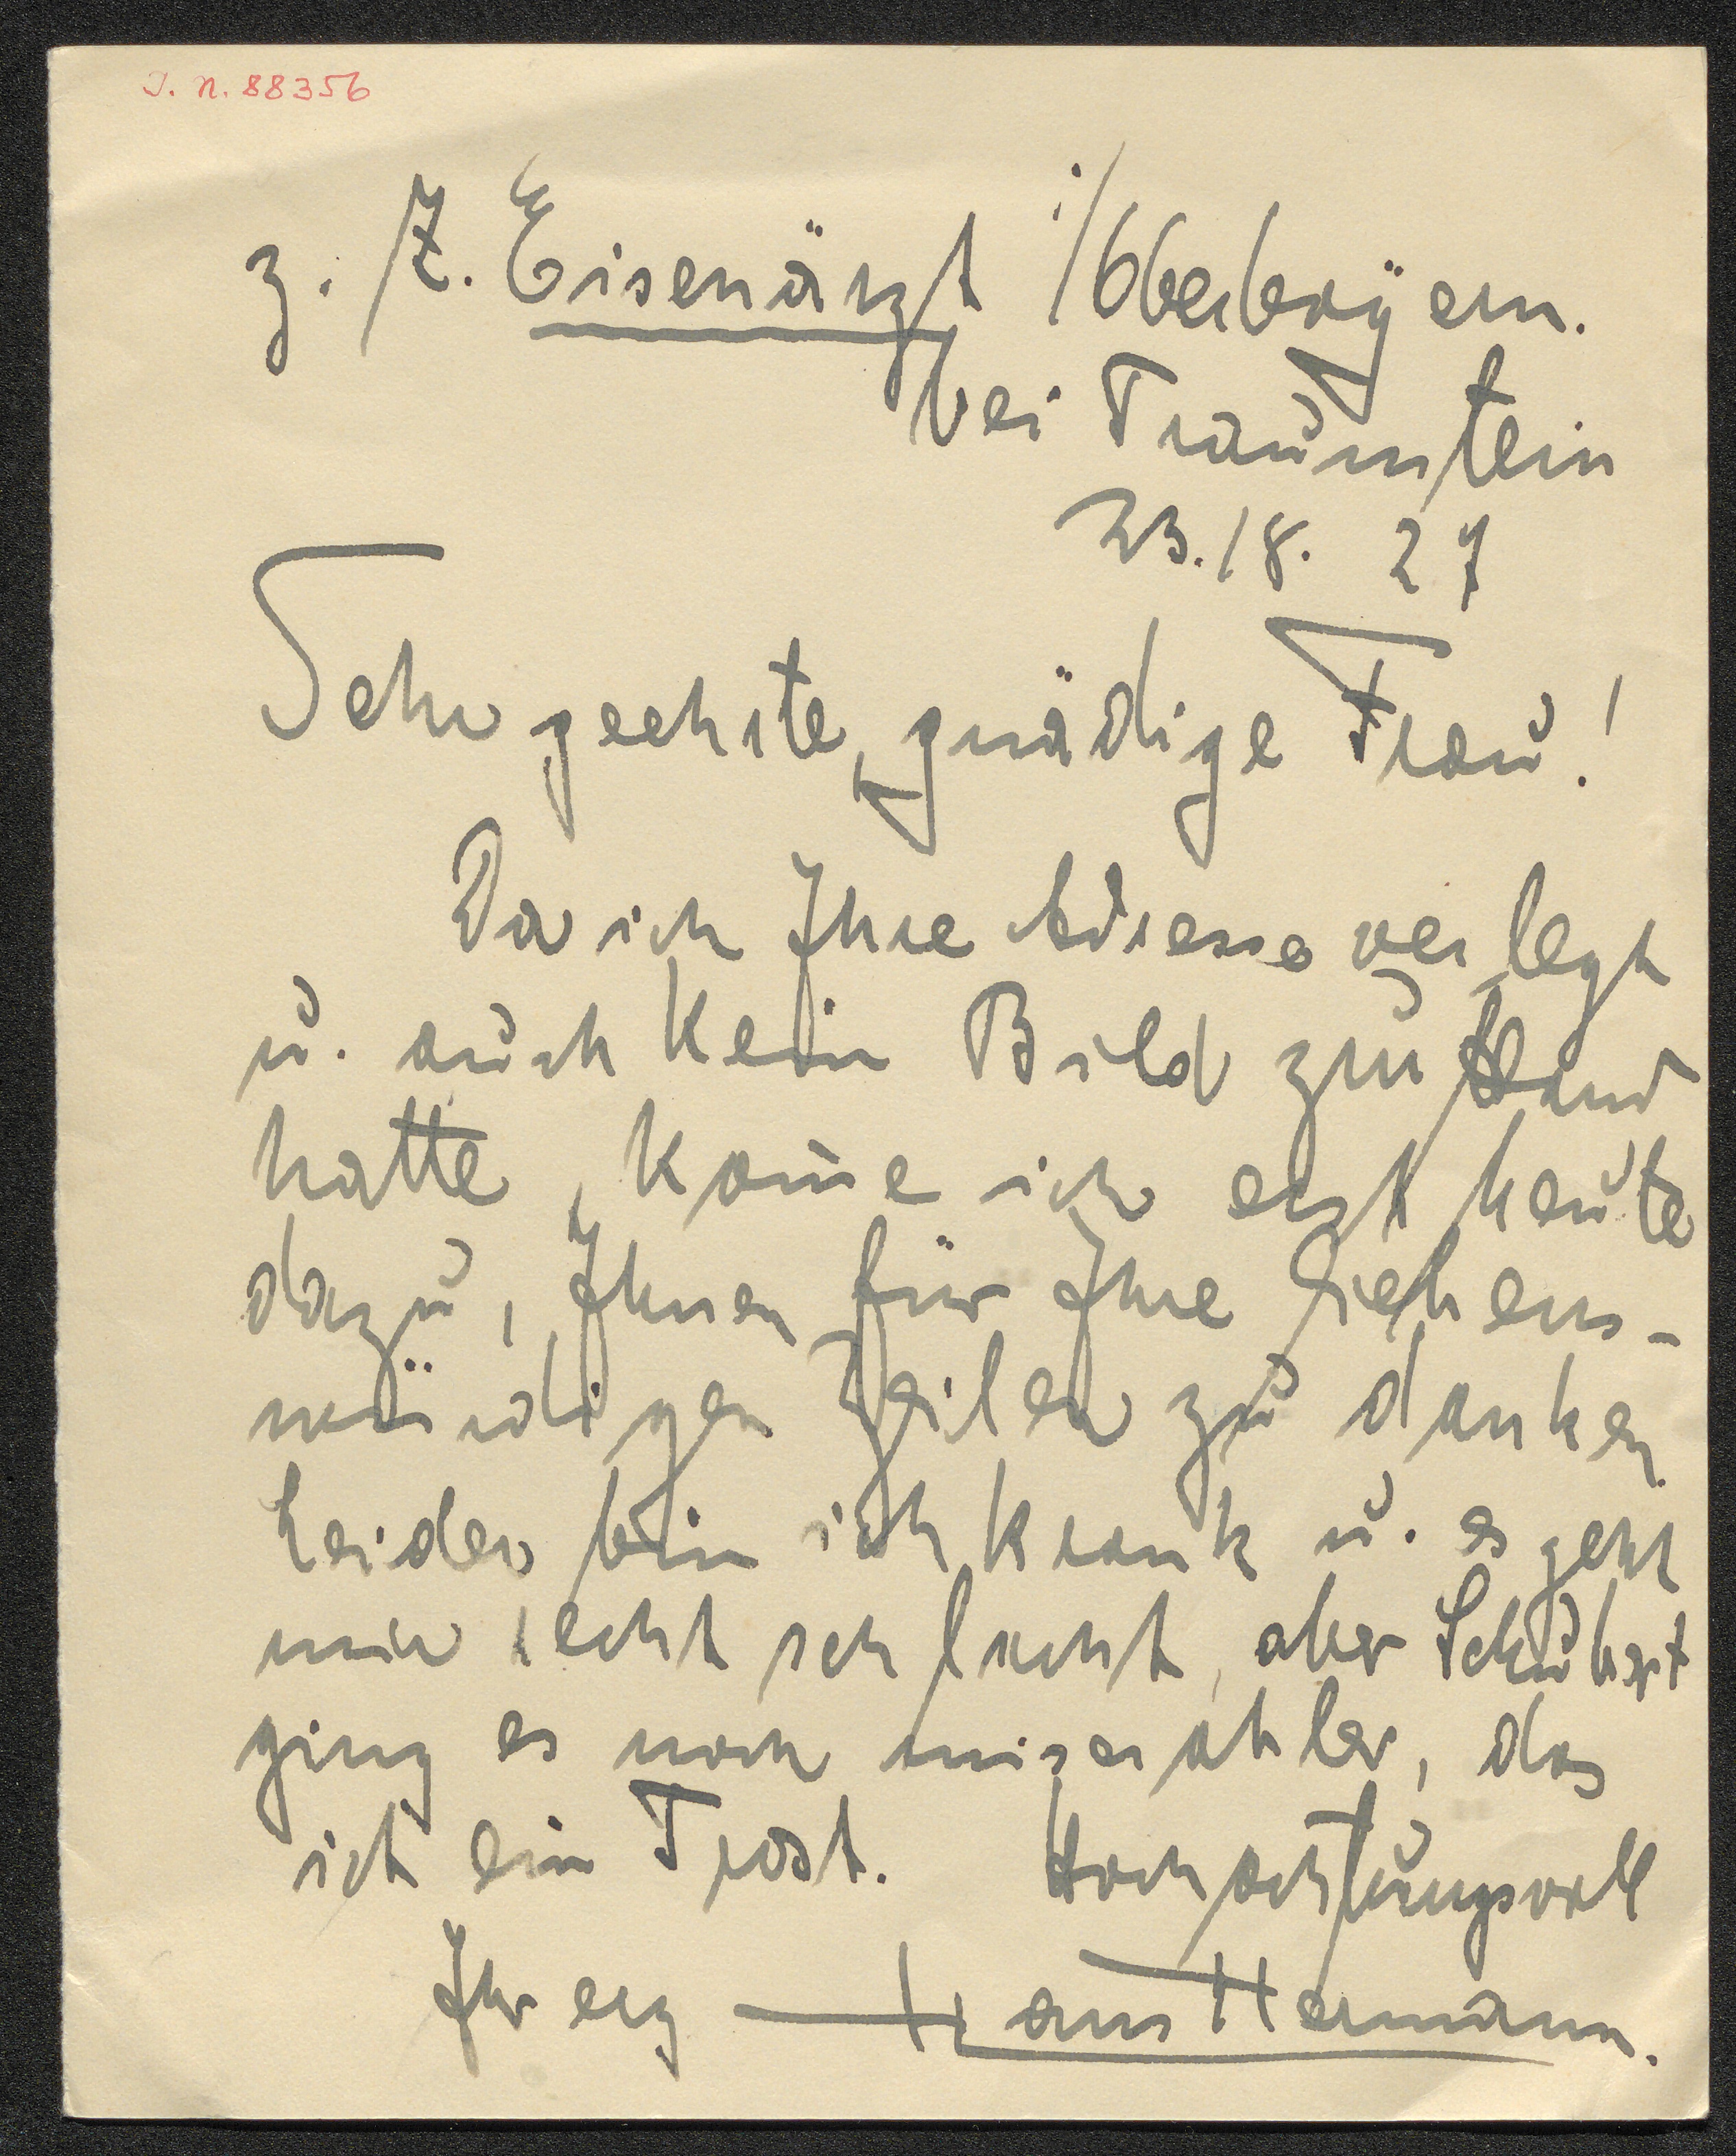 J. N. 88356
z. Z. Eisenärzt i/Oberbayern.
bei Traunstein
23./8. 27
Sehr geehrte, gnädige Frau!
Da ich Ihre Adresse verlegt
u. auch kein Bild zur Hand
hatte, kom̄e ich erst heute
dazu, Ihnen für Ihre liebens-
würdigen Zeilen zu danken.
Leider bin ich krank u. es geht
mir recht schlecht, aber Schubert
ging es noch miserabler, das
ist ein Trost. Hochachtungsvoll
Ihr erg Hans Hermann.